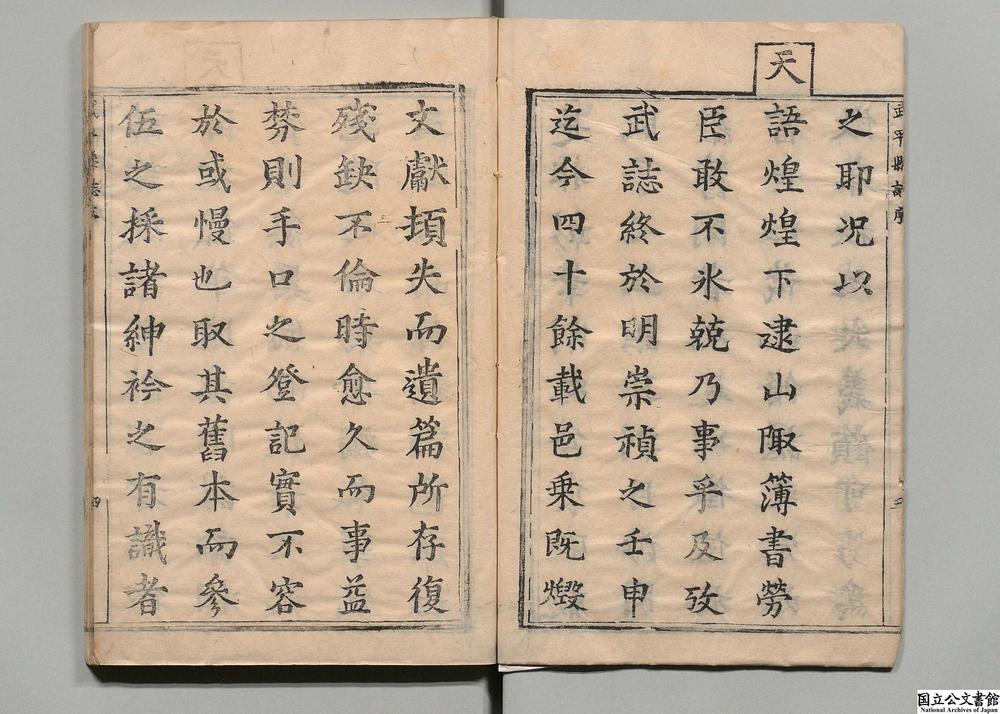 武平縣志序
之耶况以
天
語煌煌下逮山陬簿書勞
臣敢不氷兢乃事乎及攷
武誌終於明崇禎之壬申
迄今四十餘載邑乗既燬
三
文獻頓失而遺篇所存復
殘缺不倫時愈久而事益
棼則手口之登記實不容
於或慢也取其舊本而參
伍之採諸紳衿之有識者
四
国立公文書館
National Archives of Japan